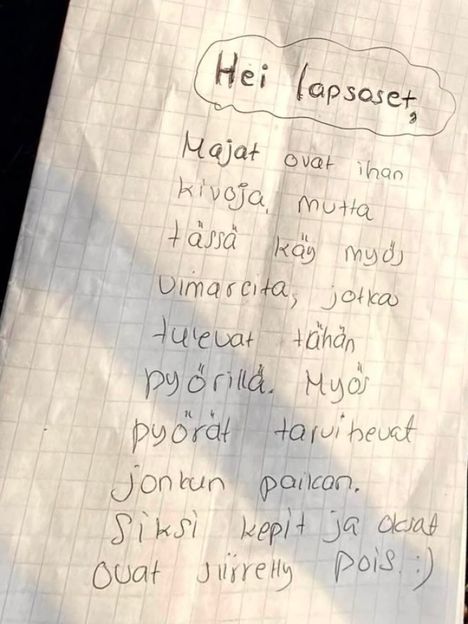 Hei lapsoset,
Majat ovat ihan
kivoja, mutta
tässä käy myös
Uimarcita, jotka
tulevat tähän
pyörillä. Myös
pyörät tarvihevat
jonkun paikan.
Siksi kepit ja oksat
ovat siirrelly pois. :)